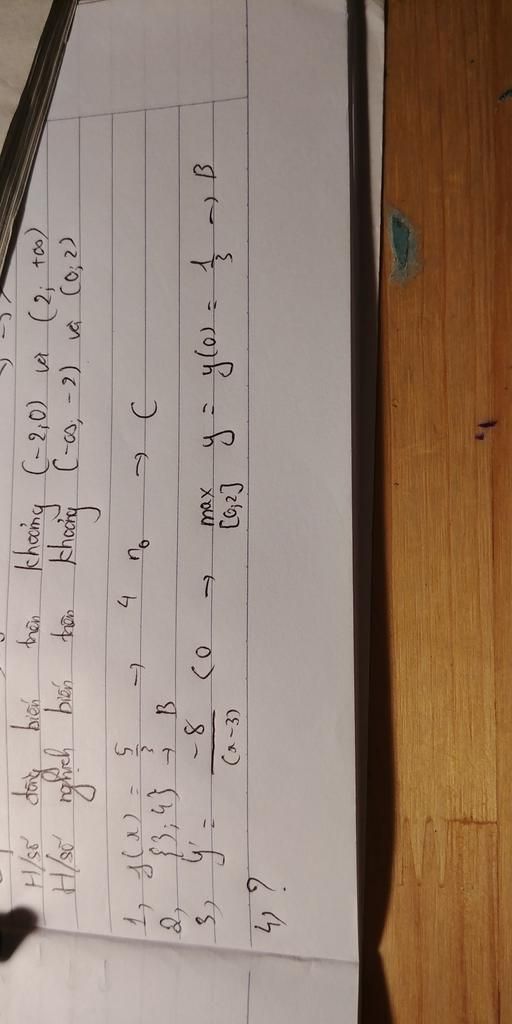 H/số đồng biến trên khoảng (-2,0) và (2; +∞)
H/số nghịch biến trên khoảng (-∞, -2) và (0; 2)
1, f(x) = 5/3 → 4 n₀ → C
2, {3; 4} → B
3, y' = -8/(x-3) < 0 → max [0;2] y = y(0) = 1/3 → B
4, ?